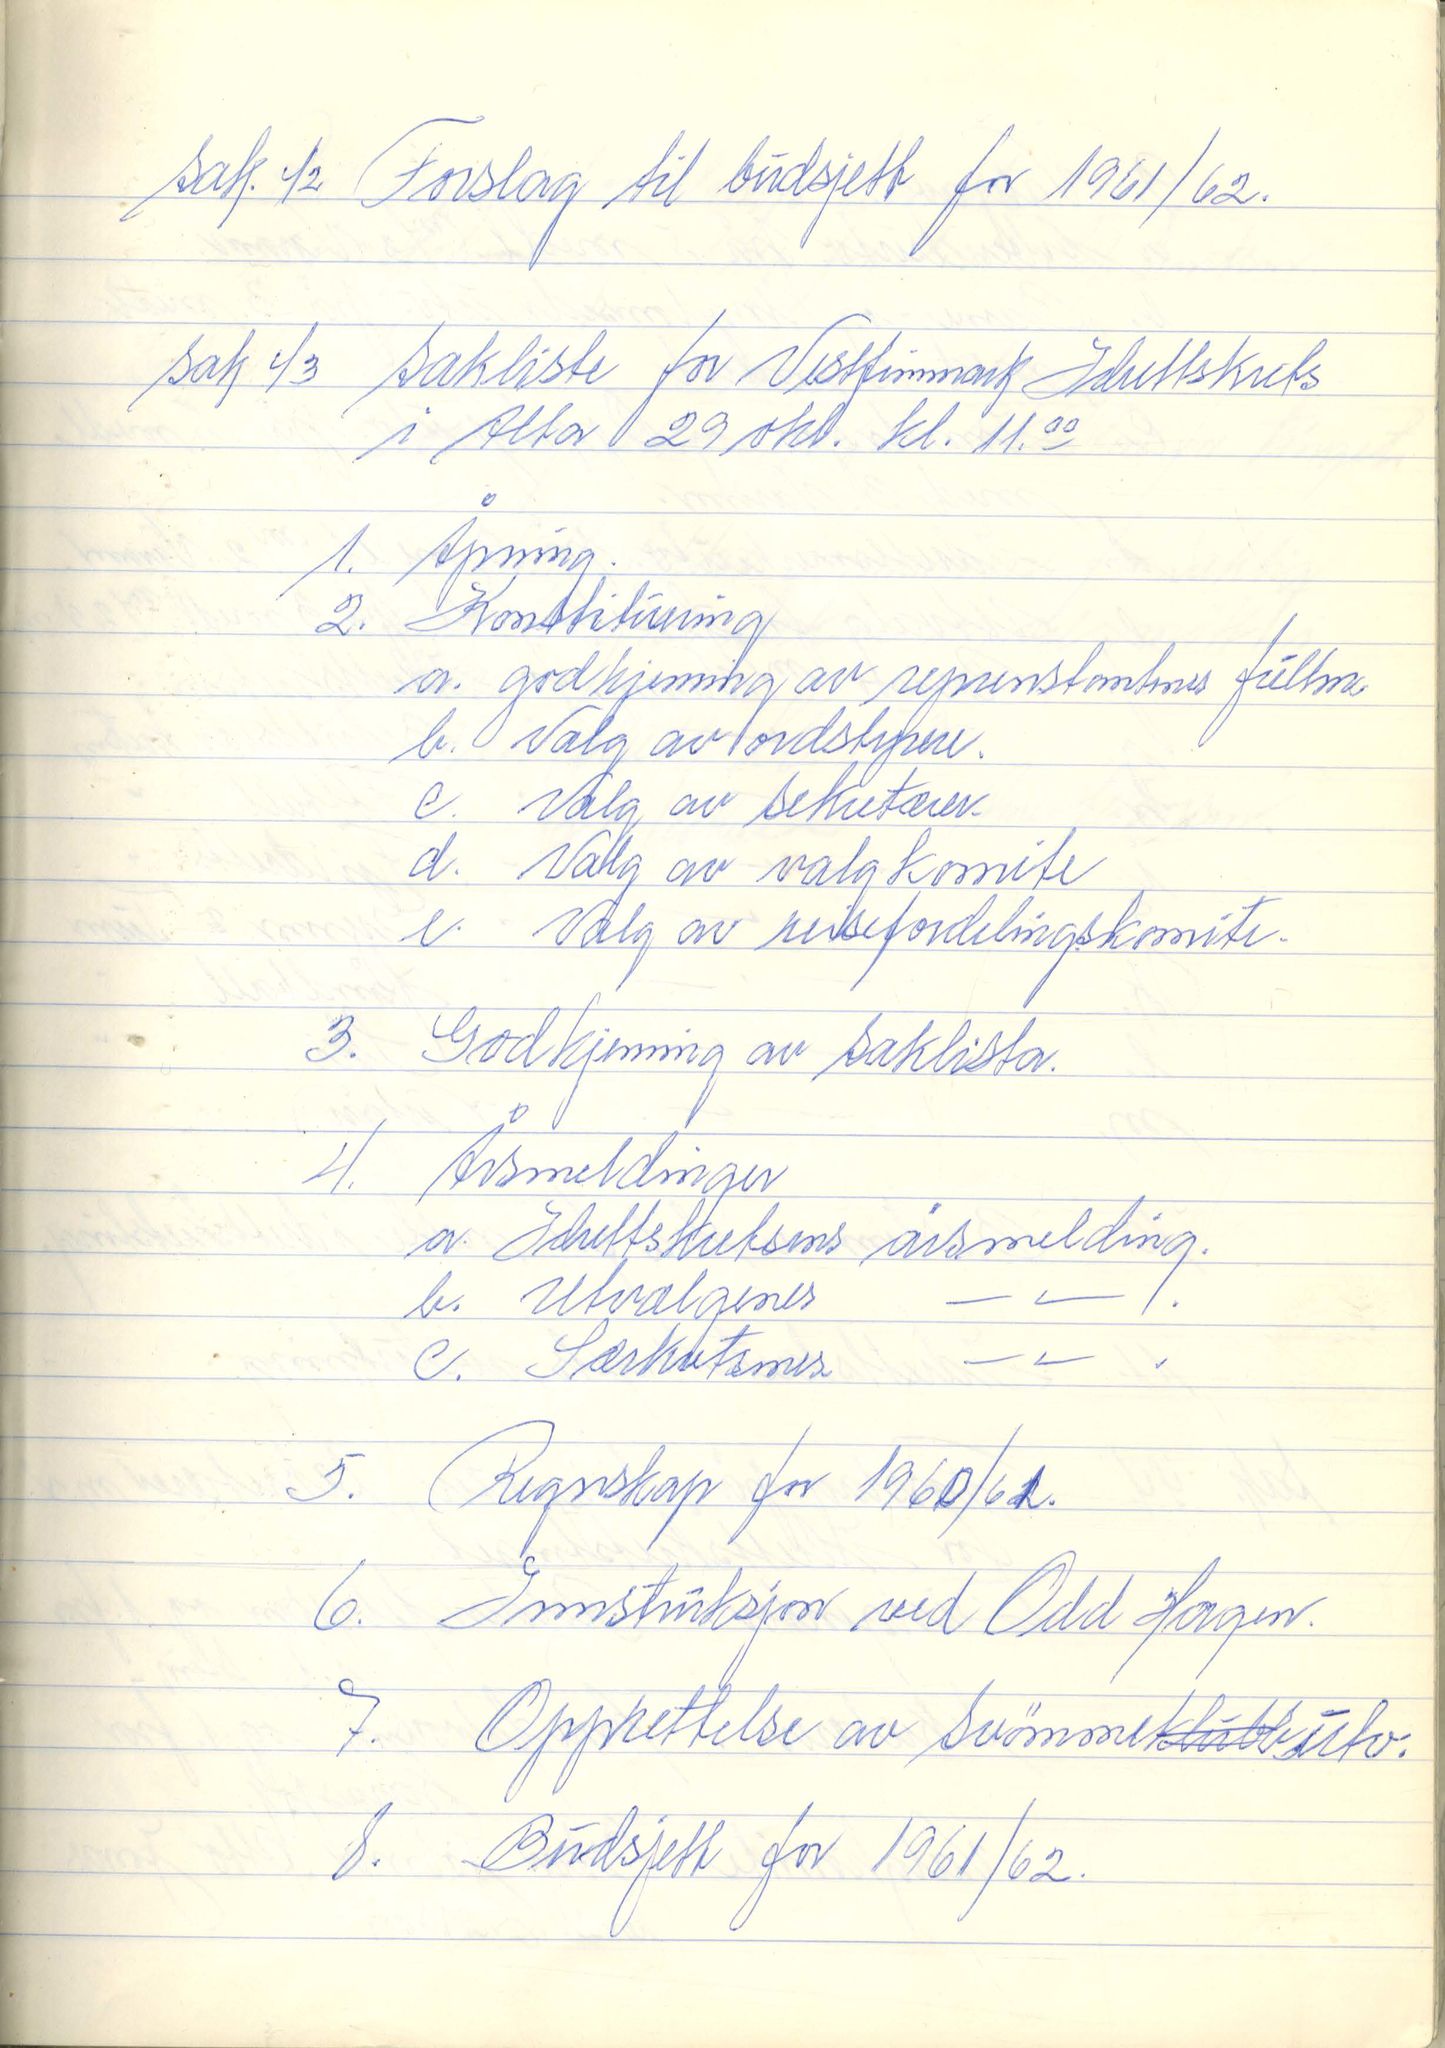 Sak. 42 Forslag til budsjett for 1961/62.
Sak 43 Sakliste for Vestfinnmark Idrettskrets
i Alta 29 okt. kl. 11.00
1. Åpning.
2. Konstituering
a. godkjenning av reprenstantenes fullm.
b. Valg av ordstyrere.
c. Valg av sekretærer.
d. Valg av valgkomite
e. Valg av reisefordelingskomite.
3. Godkjenning av saklista.
4. Årsmeldinger
a. Idrettskretsens årsmelding.
b. Utvalgenes — " — .
c. Særkretsenes — " — .
5. Regnskap for 1960/61.
6. Innstruksjon ved Odd Hagen.
7. Opprettelse av svømmeutv.
8. Budsjett for 1961/62.